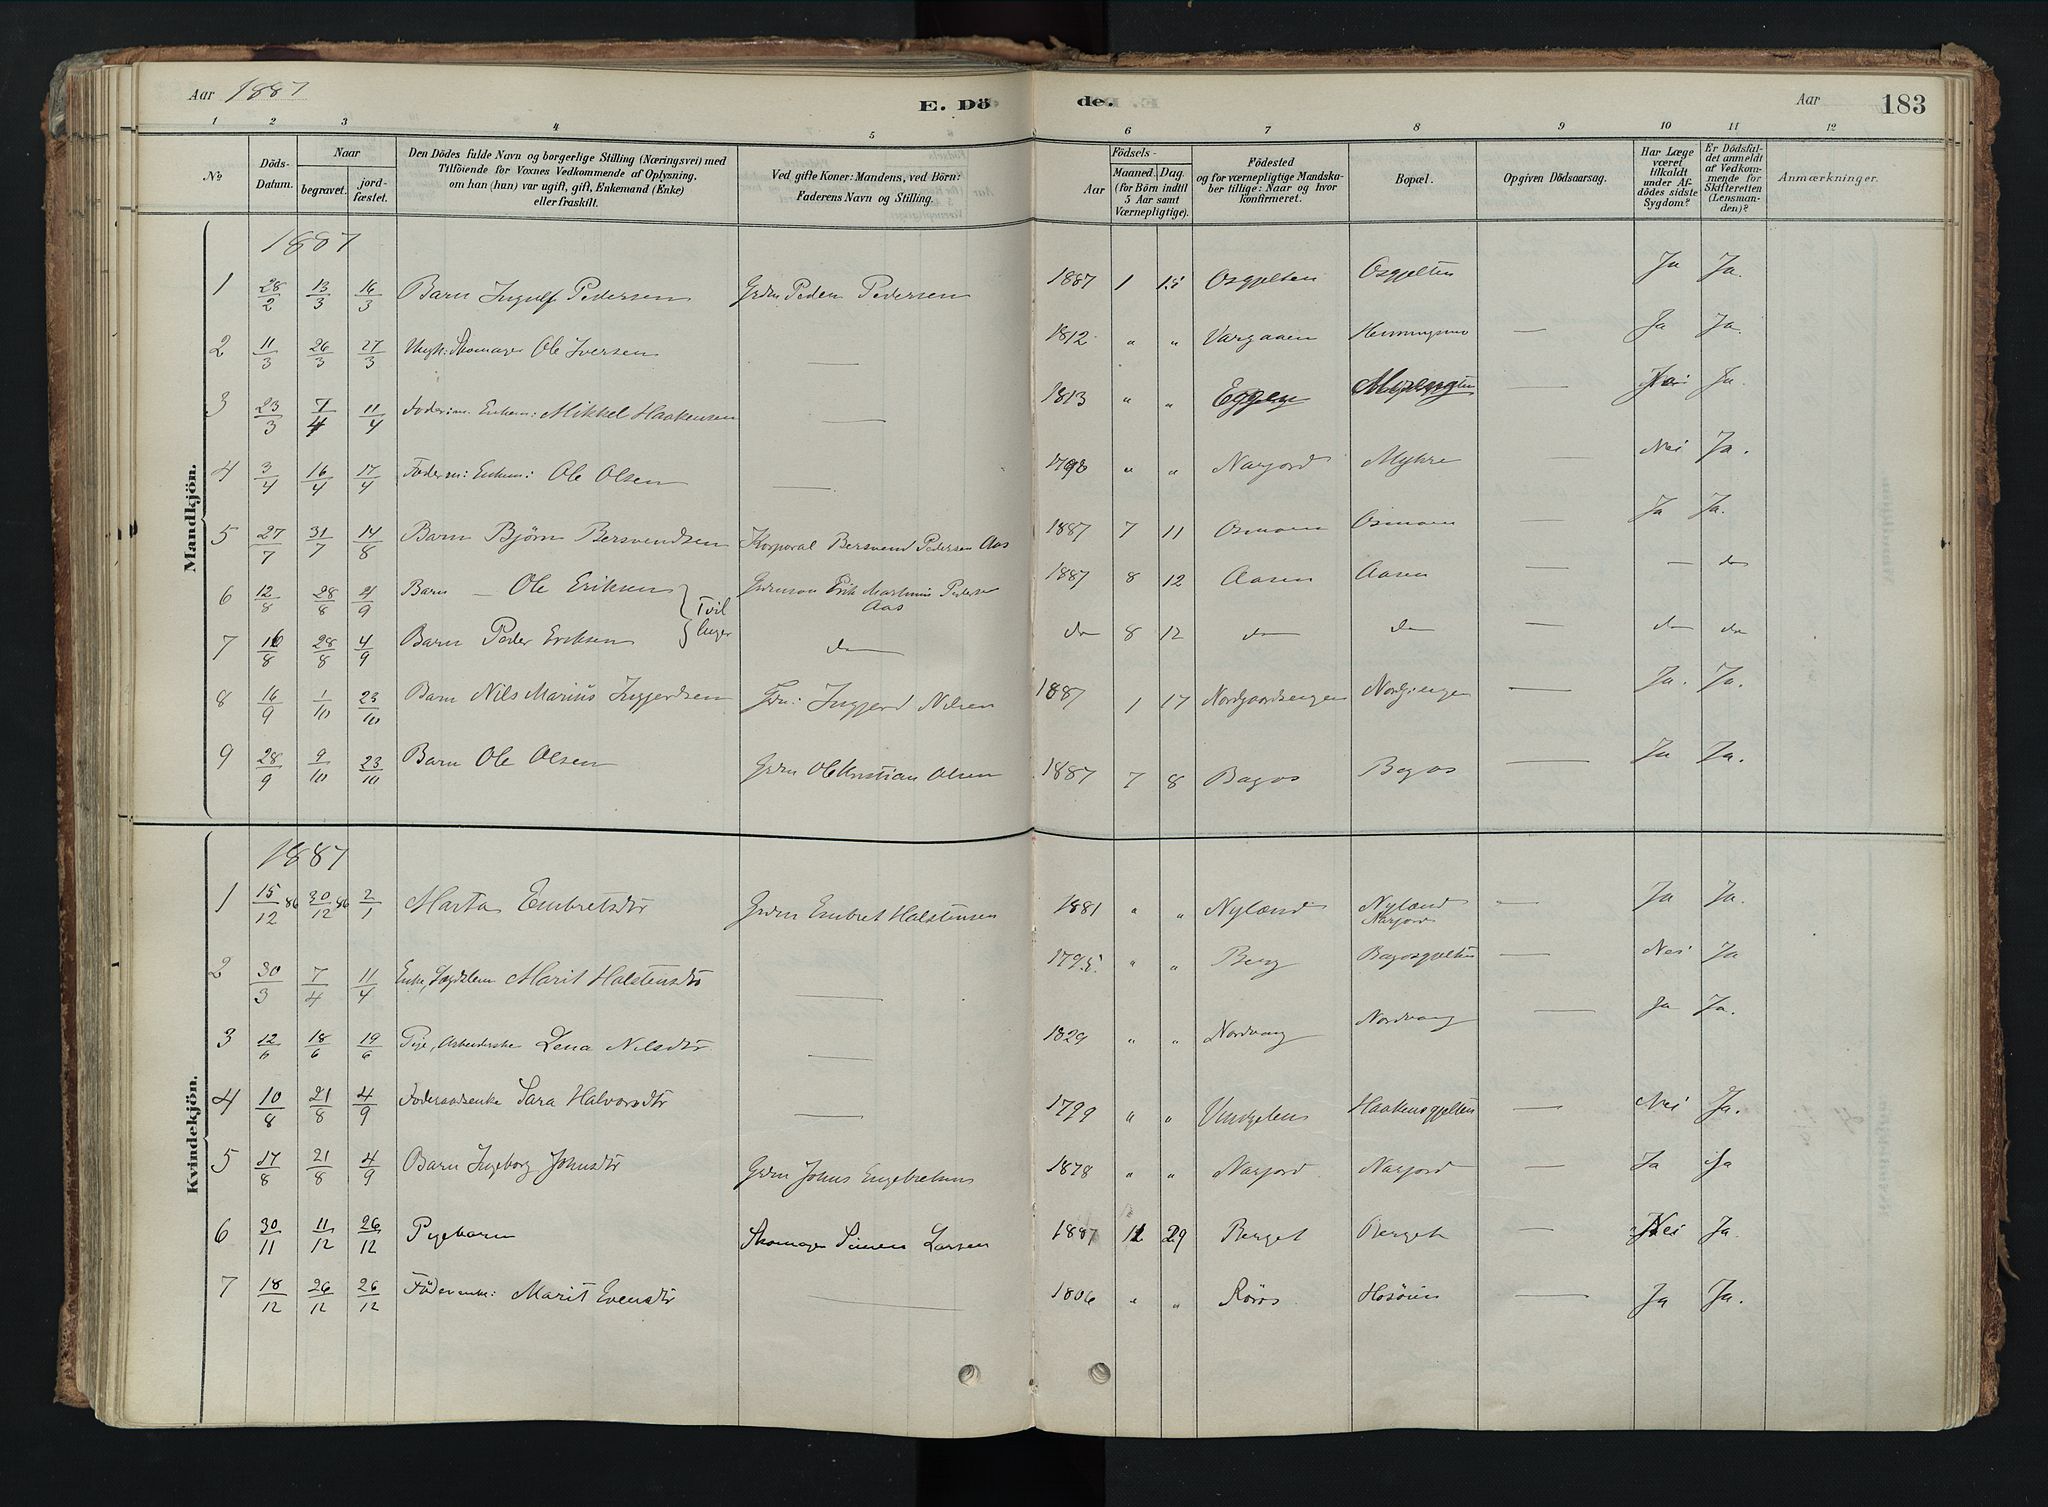 Aar 1887 E. Dö de. Aar 183
1 2 3 4 5 6 7 8 9 10 11 12
No. Döds-Datum. Naar begravet. jord-fæstet. Den Dödes fulde Navn og borgerlige Stilling (Næringsvei) med Tilföiende for Voxnes Vedkommende af Oplysning, om han (hun) var ugift, gift, Enkemand (Enke) eller fraskilt. Ved gifte Koner: Mandens, ved Börn: Faderens Navn og Stilling. Aar Födsels- Maaned. Dag. (for Börn indtil 5 Aar samt Værnepligtige). Födested og for værnepligtige Mandskaber tillige: Naar og hvor konfirmeret. Bopæl. Opgiven Dödsaarsag. Har Læge været tilkaldt under Afdödes sidste Sygdom? Er Dödsfaldet anmeldt af Vedkommende for Skifteretten (Lensmanden)? Anmærkninger.
Mandkjön.
1887
1 28/2 13/3 16/3 Barn Ingulf Pedersen Grdm Peder Pedersen 1887 1 15 Osgjelten Osgjelten Ja Ja.
2 11/3 26/3 27/3 Ungk: Skomager Ole Iversen — 1812 " " Vargaaen Henningsmo — Ja Ja.
3 23/3 7/4 11/4 Foderm. Enkem: Mikkel Haakensen — 1813 " " Eggen — Nei Ja.
4 3/4 16/4 17/4 Foderm: Enkem: Ole Olsen — " " Narjord Myhre — Nei Ja.
5 27/7 31/7 14/8 Barn Bjørn Bersvendsen Korporal Bersvend Pedersen Aas 1887 7 11 Osmoen Osmoen — Ja Ja.
6 12/8 28/8 4/9 Barn — Ole Eriksen } Tvil Grdmson Erik Martinus Pederse Aas 1887 8 12 Aasen Aasen — do
7 16/8 28/8 4/9 Barn Peder Eriksen } linger do do 8 12 do do do do
8 16/9 1/10 23/10 Barn Nils Marius Ingjerdsen Grdm: Ingjerd Nilsen 1887 1 17 Nordgaardsengen Nordgjengen — Ja. Ja.
9 28/9 9/10 23/10 Barn Ole Olsen Grdm Ole Kristian Olsen 1887 7 8 Bagos Bagos — Ja Ja.
Kvindekjön.
1887
1 15/12 86 30/12 86 2/1 Marta Embretsdtr Grdm Embret Halstensen 1881 " " Nylænd Nylænd Narjord — Ja Ja.
2 30/3 7/4 11/4 Enke, Lægdslem Marit Halstensdtr — 1795. " " Berg Bagosgjelten — Nei Ja
3 12/6 18/6 19/6 Pige, Arbeiderske Lena Nilsdtr — 1829 " " Nordvang Nordvang — Ja Ja.
4 10/8 21/8 4/9 Foderaadsenke Sara Halvorsdtr — 1799 " " Vingelen Haakensgjelten — Nei Ja.
5 17/8 21/8 4/9 Barn Ingeborg Johnsdtr Grdm Johns Engebretsen 1878 " " Narjord Narjord — Ja Ja
6 30/11 11/12 26/12 Pigebarn Skomager Simen Larsen 1887 11 29 Berget Berget — Nei Ja.
7 18/12 26/12 26/12 Föderenke: Marit Evensdtr — 1806 " " Röros Hosöien — Ja Ja.